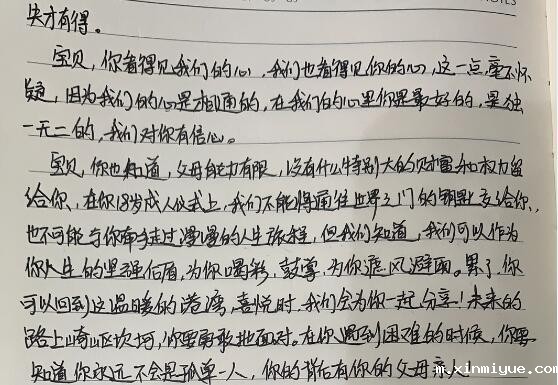 失才有得。
宝贝,你看得见我们的心,我们也看得见你的心,这一点,毫不怀
疑,因为我们的心是相通的,在我们的心里你是最好的,是独
一无二的,我们对你有信心。
宝贝,你也知道,父母能力有限,没有什么特别大的财富和权力留
给你、在你18岁成人仪式上,我们不能将通往世界之门的钥匙交给你、
也不可能与你牵手走过漫漫的人生旅程,但我们知道,我们可以作为
你人生的坚强后盾,为你喝彩,鼓掌,为你遮风避雨。累了,你
可以回到这温暖的港湾,喜悦时,我们会为你一起分享!未来的
路上崎岖坎坷,你要勇敢地面对。在你遇到困难的时候,你要
知道你永远不会是孤单一人,你的背后有你的父母亲人
m.xinmiyue.com